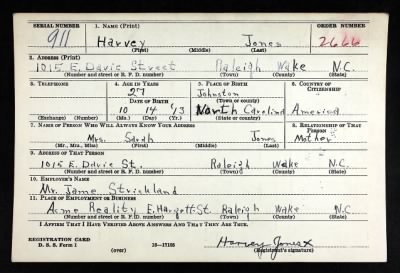 SERIAL NUMBER 1. NAME (Print) ORDER NUMBER
911 Harvey Jones 2666
(First) (Middle) (Last)
2. ADDRESS (Print)
1015 E. Davie Street Raleigh Wake N.C.
(Number and street or R. F. D. number) (Town) (County) (State)
3. TELEPHONE 4. AGE IN YEARS 5. PLACE OF BIRTH 6. COUNTRY OF CITIZENSHIP
27 Johnston
DATE OF BIRTH (Town or county)
10 14 13 North Carolina America
(Exchange) (Number) (Mo.) (Day) (Yr.) (State or country)
7. NAME OF PERSON WHO WILL ALWAYS KNOW YOUR ADDRESS 8. RELATIONSHIP OF THAT PERSON
Mrs. Sarah Jones Mother
(Mr., Mrs., Miss) (First) (Middle) (Last)
9. ADDRESS OF THAT PERSON
1015 E. Davie St. Raleigh Wake N.C.
(Number and street or R. F. D. number) (Town) (County) (State)
10. EMPLOYER'S NAME
Mr. Jame Strickland
11. PLACE OF EMPLOYMENT OR BUSINESS
Acme Reality E. Hargett St. Raleigh Wake N.C.
(Number and street or R. F. D. number) (Town) (County) (State)
I AFFIRM THAT I HAVE VERIFIED ABOVE ANSWERS AND THAT THEY ARE TRUE.
REGISTRATION CARD
D. S. S. Form 1 (over) 16—17105 Harvey Jones x
(Registrant's signature)